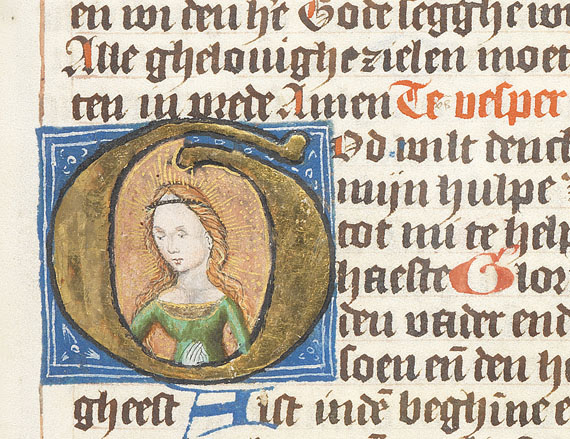 en wi den hē Gode segghe
Alle ghelouighe zielen moet
ten in vrede Amen Te vesper
God wilt denck
mijn hulpe
tot mi te help
haeste Glor
den vader end
soen eñ den he
gheest Alst indē beghīne e